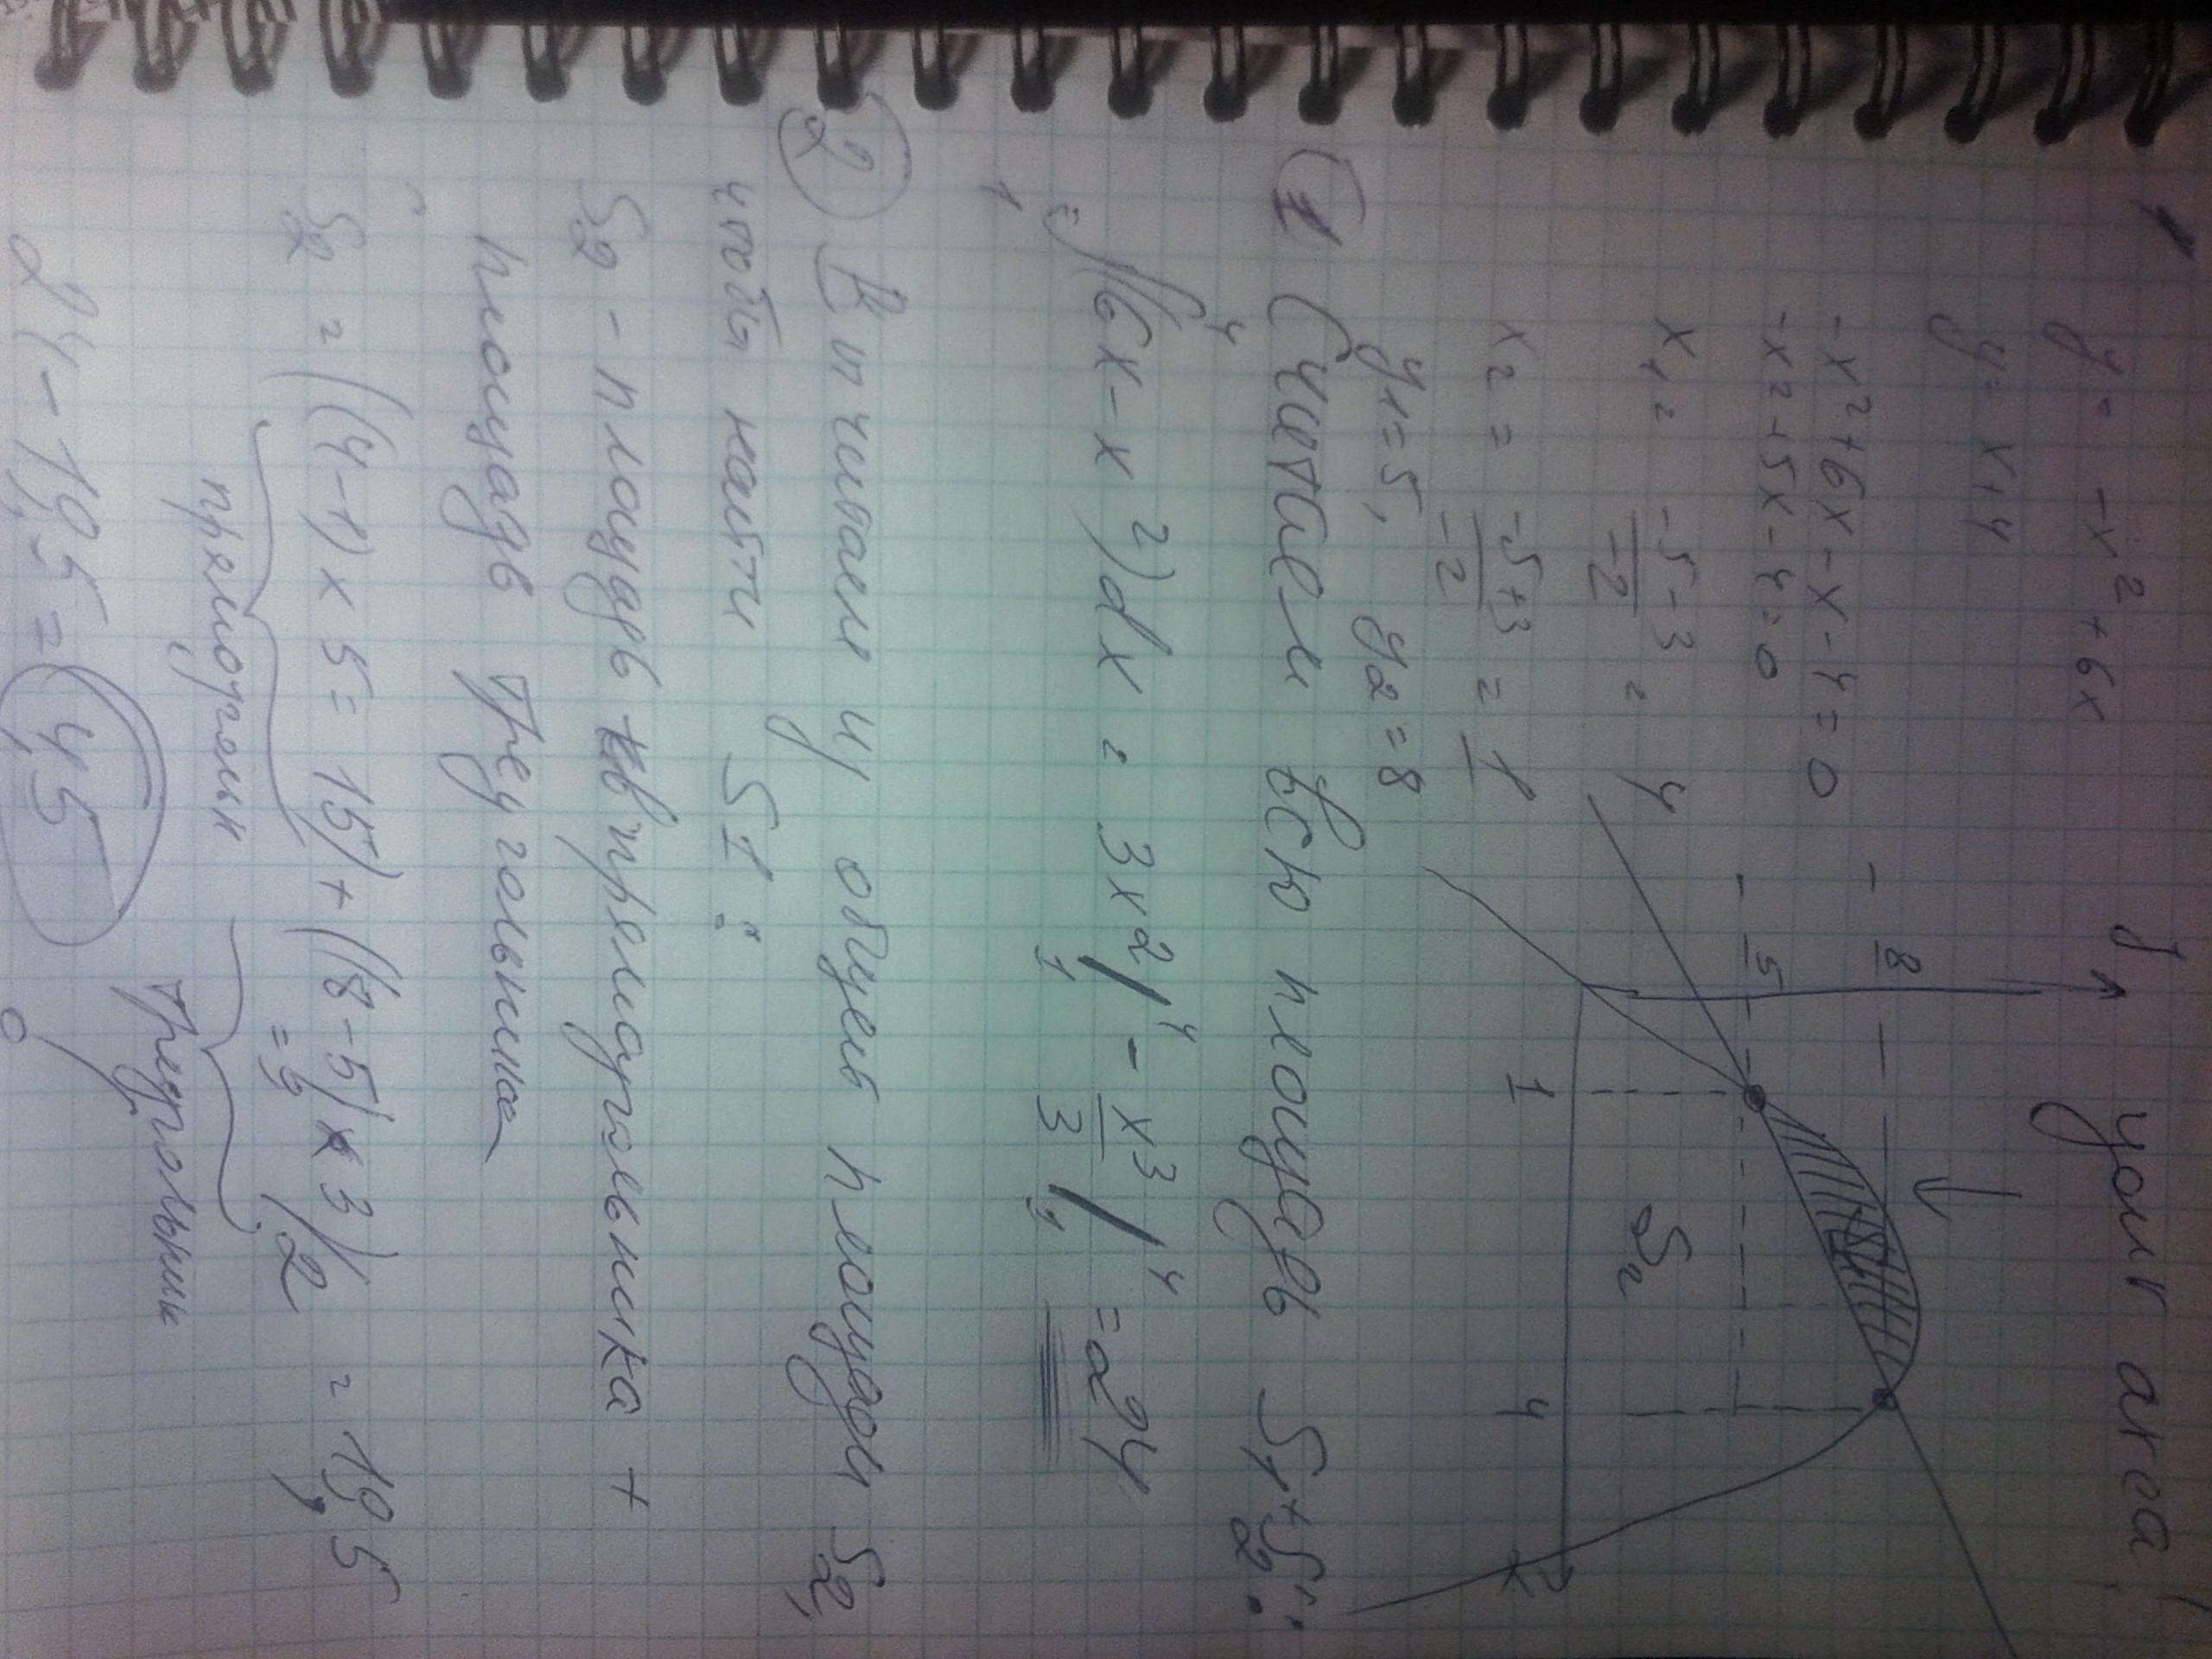 1
y = -x² + 6x
y = x + 4
-x² + 6x - x - 4 = 0
-x² + 5x - 4 = 0
x₁ = -5-3/-2 = 4
x₂ = -5+3/-2 = 1
y₁ = 5, y₂ = 8
y
8
5
S₂
1 4
x
① Считаем всю площадь S₁+S₂:
= ∫₁⁴(6x-x²)dx = 3x²/₁⁴ - x³/3 /₁⁴ = 24
② Вычитаем из общей площади S₂,
чтобы найти S1:
S₂ - площадь прямоугольника +
площадь треугольника
S₂ = ((4-1) x 5 = 15) + ((8-5) x 3)/2 = 19,5
= 9
прямоугольн
треугольник
24 - 19,5 = 4,5